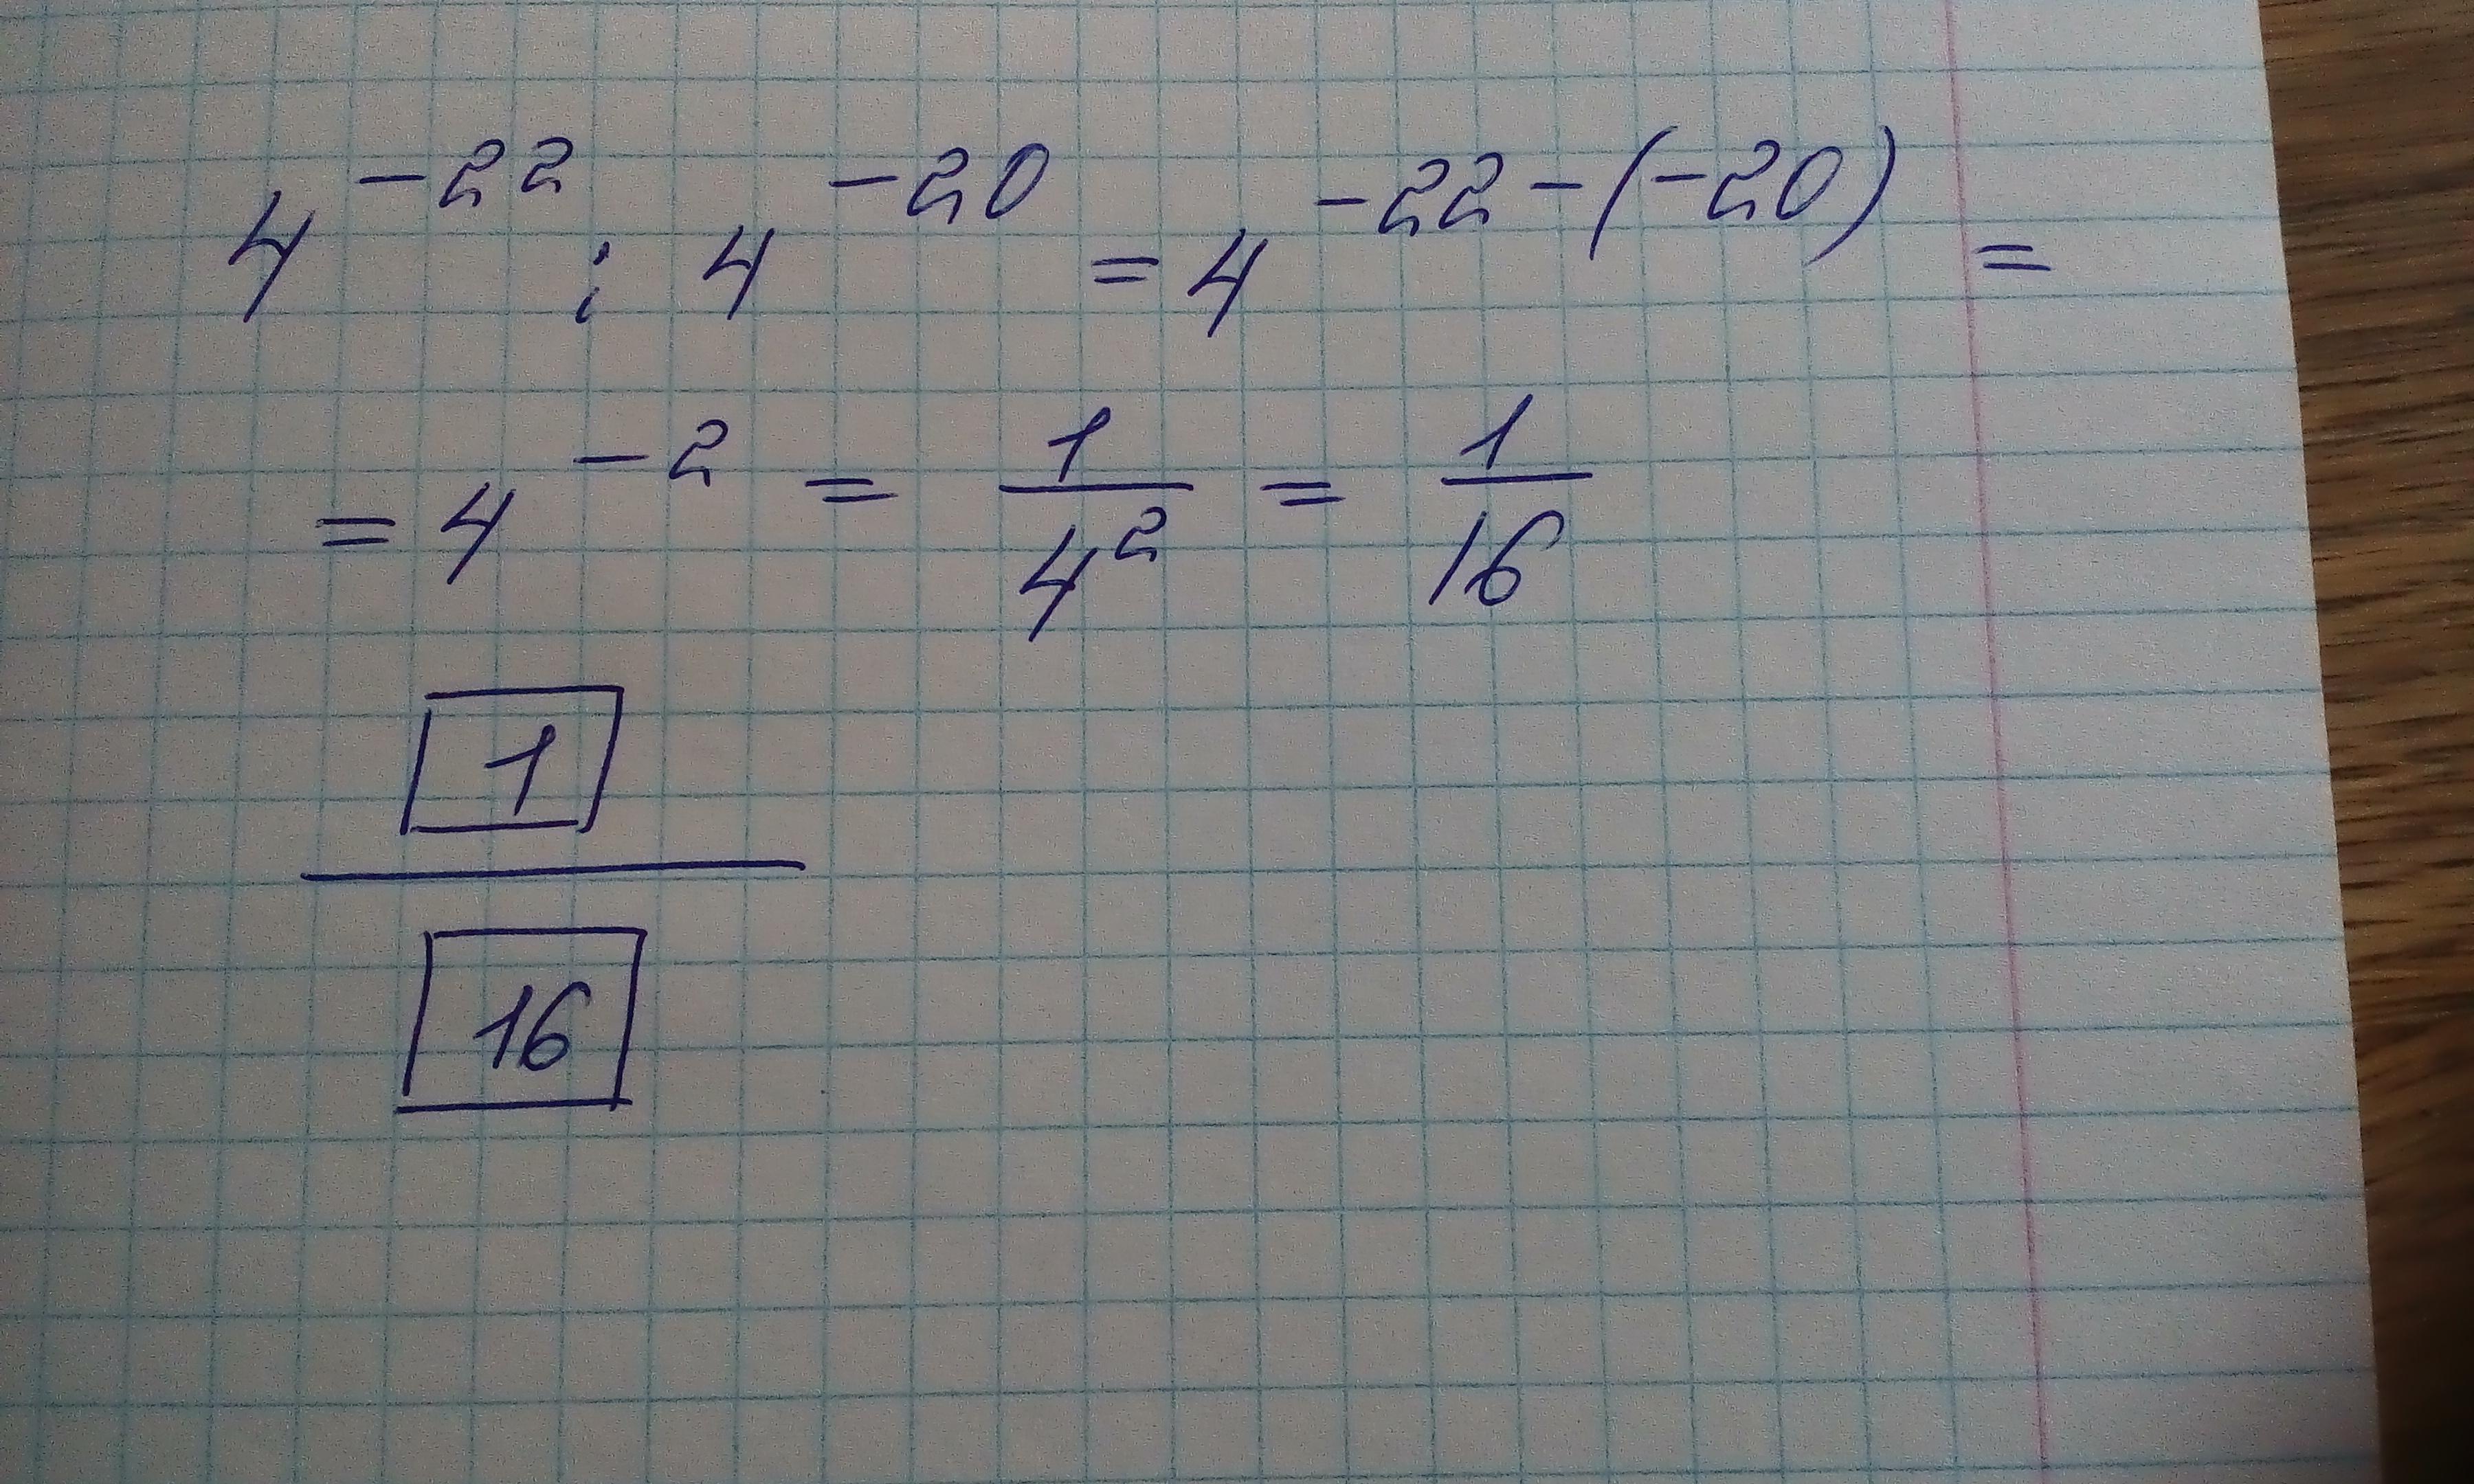 4^{-22} : 4^{-20} = 4^{-22-(-20)} =
= 4^{-2} = \frac{1}{4^2} = \frac{1}{16}
1
16